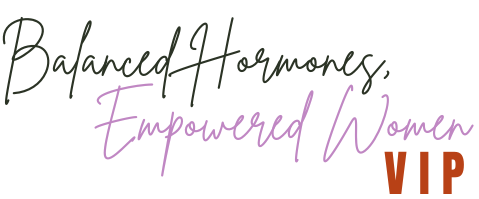 Balanced Hormones,
Empowered Women
VIP